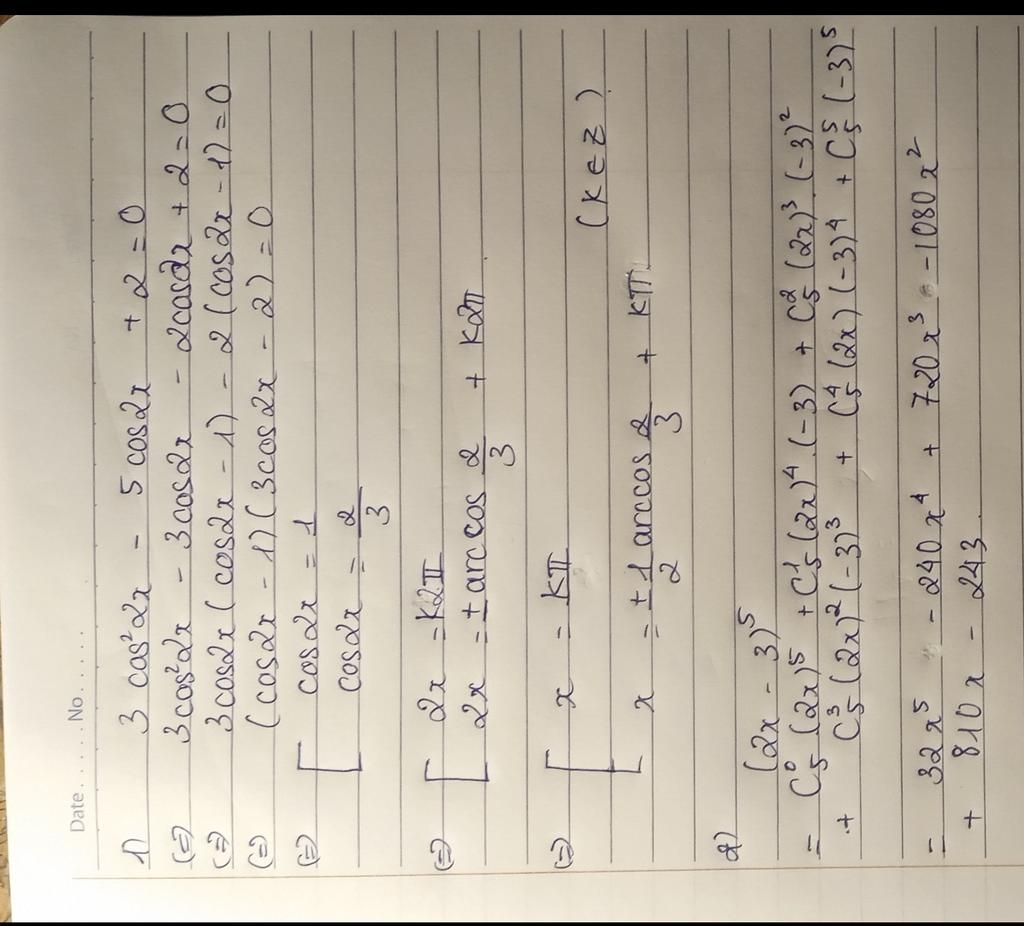 Date......No......
1) 3 cos²2x - 5 cos2x + 2 = 0
(=) 3cos²2x - 3cos2x - 2cos2x + 2 = 0
(=) 3cos2x (cos2x - 1) - 2 (cos2x - 1) = 0
(=) (cos2x - 1) (3cos2x - 2) = 0
(=) [ cos2x = 1
cos2x = 2/3
(=) [ 2x = k2π
2x = ± arccos 2/3 + k2π
(=) [ x = kπ
x = ± 1/2 arccos 2/3 + kπ (k ∈ Z)
2) (2x - 3)⁵
= C⁰₅ (2x)⁵ + C¹₅ (2x)⁴.(-3) + C²₅ (2x)³.(-3)²
+ C³₅ (2x)² (-3)³ + C⁴₅ (2x) (-3)⁴ + C⁵₅ (-3)⁵
= 32x⁵ - 240x⁴ + 720x³ - 1080x²
+ 810x - 243.